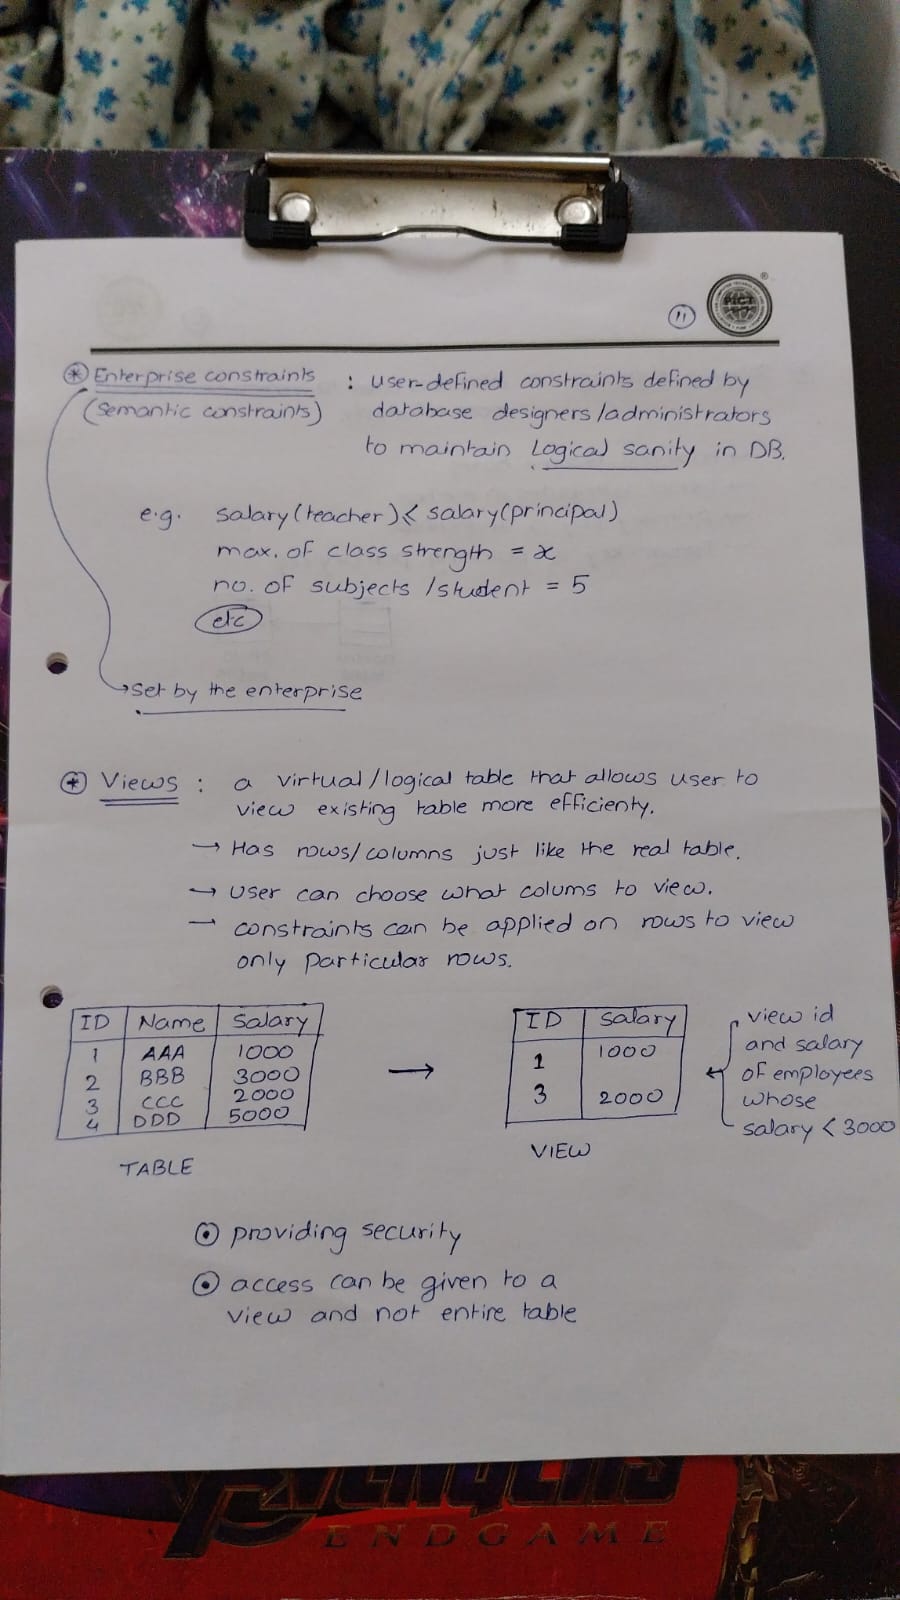 11
PICT
* Enterprise constraints : user-defined constraints defined by
(Semantic constraints) database designers/administrators
to maintain Logical sanity in DB.
e.g. salary(teacher) < salary(principal)
max. of class strength = x
no. of subjects /student = 5
etc
→ Set by the enterprise
* Views : a virtual/logical table that allows user to
view existing table more efficienty.
→ Has rows/columns just like the real table.
→ User can choose what colums to view.
→ constraints can be applied on rows to view
only particular rows.
ID Name Salary
1 AAA 1000
2 BBB 3000
3 CCC 2000
4 DDD 5000
TABLE
→
ID Salary
1 1000
3 2000
VIEW
view id
and salary
of employees
whose
salary < 3000
providing security
access can be given to a
view and not entire table
AVENGERS
ENDGAME